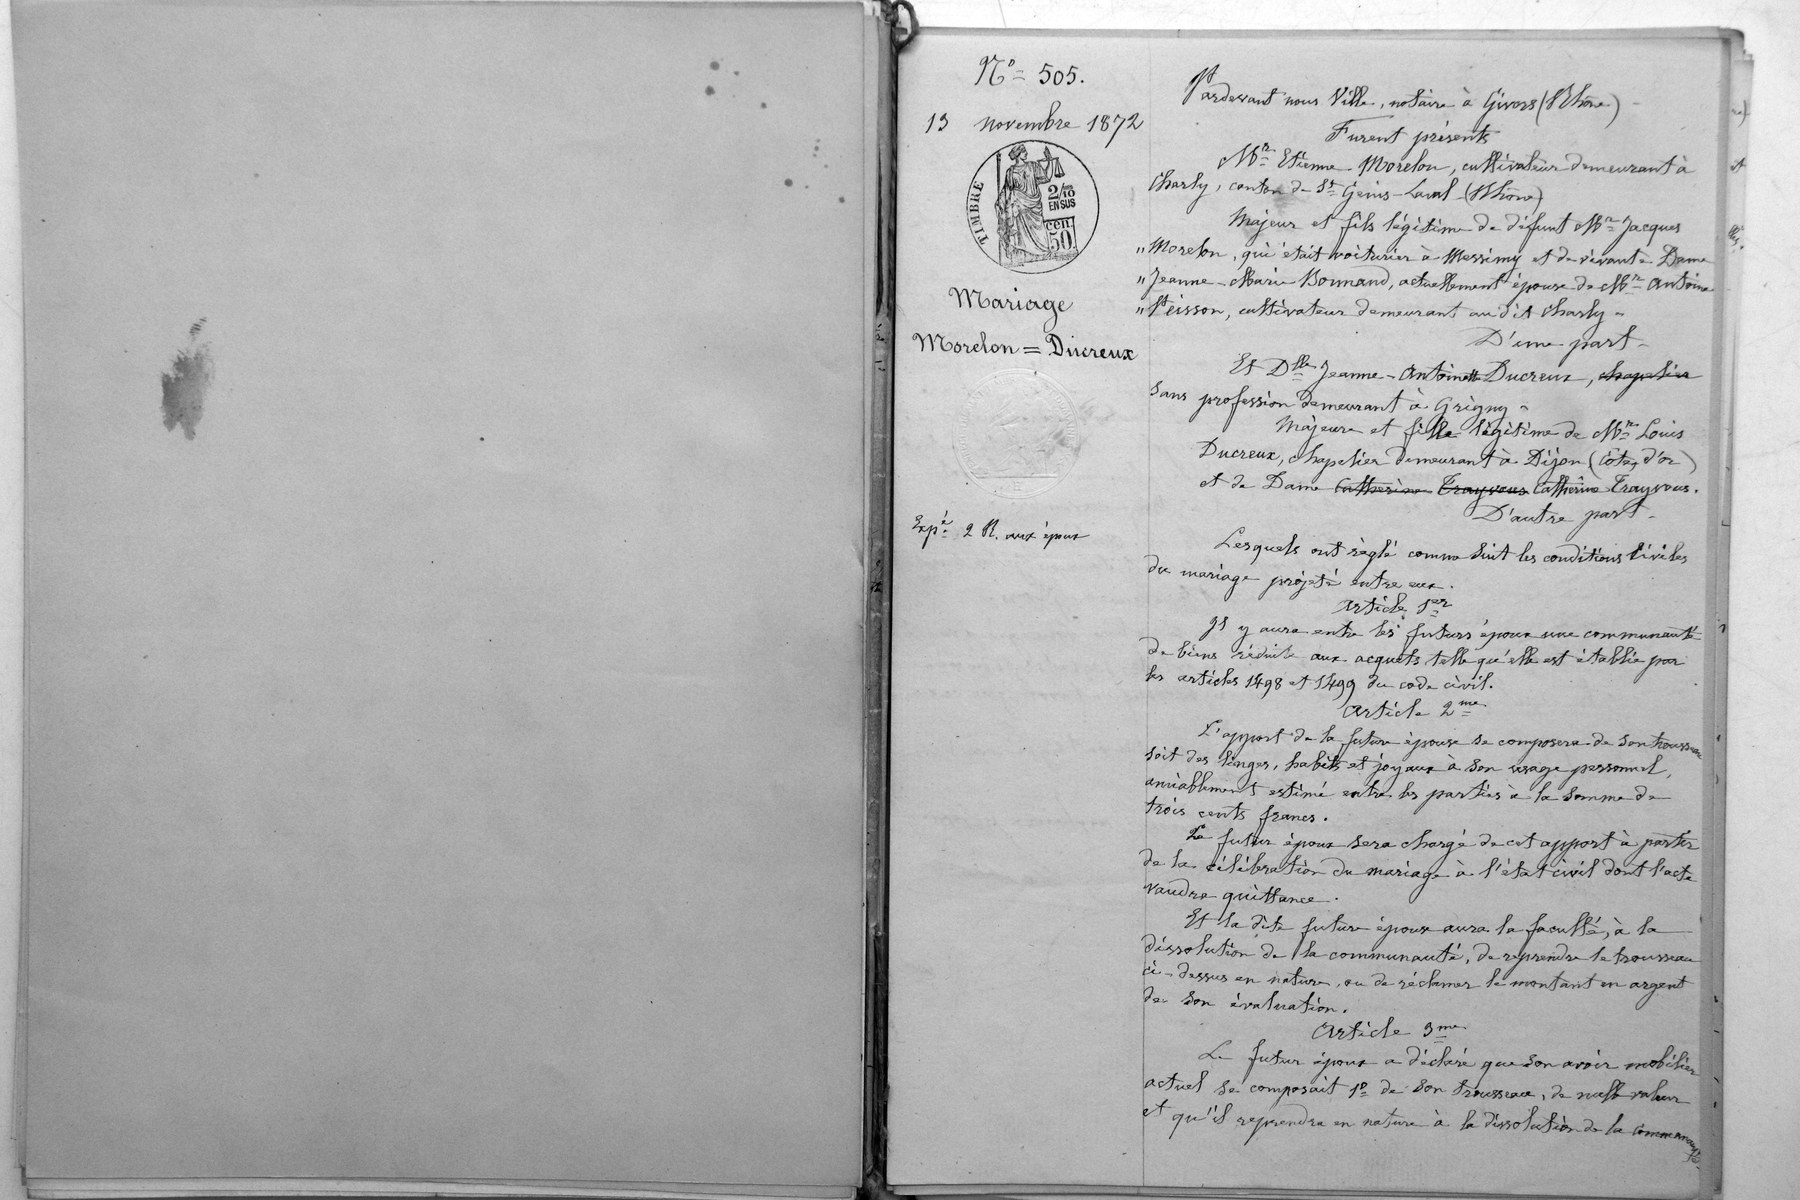 N° 505.
13 novembre 1872
TIMBRE
2/10
EN SUS
50 cen
Mariage
Morelon = Ducreux
Expé 2 R. aux époux
Pardevant nous Ville, notaire à Givors (Rhône)
Furent présents
Mr Etienne Morelon, cultivateur demeurant à
Charly, canton de St Genis-Laval (Rhône)
Majeur et fils légitime de défunt Mr Jacques
" Morelon, qui était voiturier à Messimy et de vivante Dame
" Jeanne-Marie Bonnand, actuellement épouse de Mr Antoine
" Peisson, cultivateur demeurant au dit Charly
D'une part
Et Dlle Jeanne-Antoinette Ducreux, chapelier
sans profession demeurant à Grigny
Majeure et fille légitime de Mr Louis
Ducreux, chapelier demeurant à Dijon (Côte, d'or)
et de Dame Catherine Trayvous Catherine Trayvous.
D'autre part
Lesquels ont réglé comme suit les conditions civiles
du mariage projeté entre eux.
Article 1er
Il y aura entre les futurs époux une communauté
de biens réduite aux acquets telle qu'elle est établie par
les articles 1498 et 1499 du code civil.
Article 2me
L'apport de la future épouse se composera de son trousseau
soit des linges, habits et joyaux à son usage personnel,
amiablement estimé entre les parties à la somme de
trois cents francs.
Le futur époux sera chargé de cet apport à partir
de la célébration du mariage à l'état civil dont l'acte
vaudra quittance.
Et la dite future épouse aura la faculté, à la
dissolution de la communauté, de reprendre le trousseau
ci-dessus en nature, ou de réclamer le montant en argent
de son évaluation.
Article 3me
Le futur époux a déclaré que son avoir mobilier
actuel se composait 1° de son trousseau, de nulle valeur
et qu'il reprendra en nature à la dissolution de la communauté.